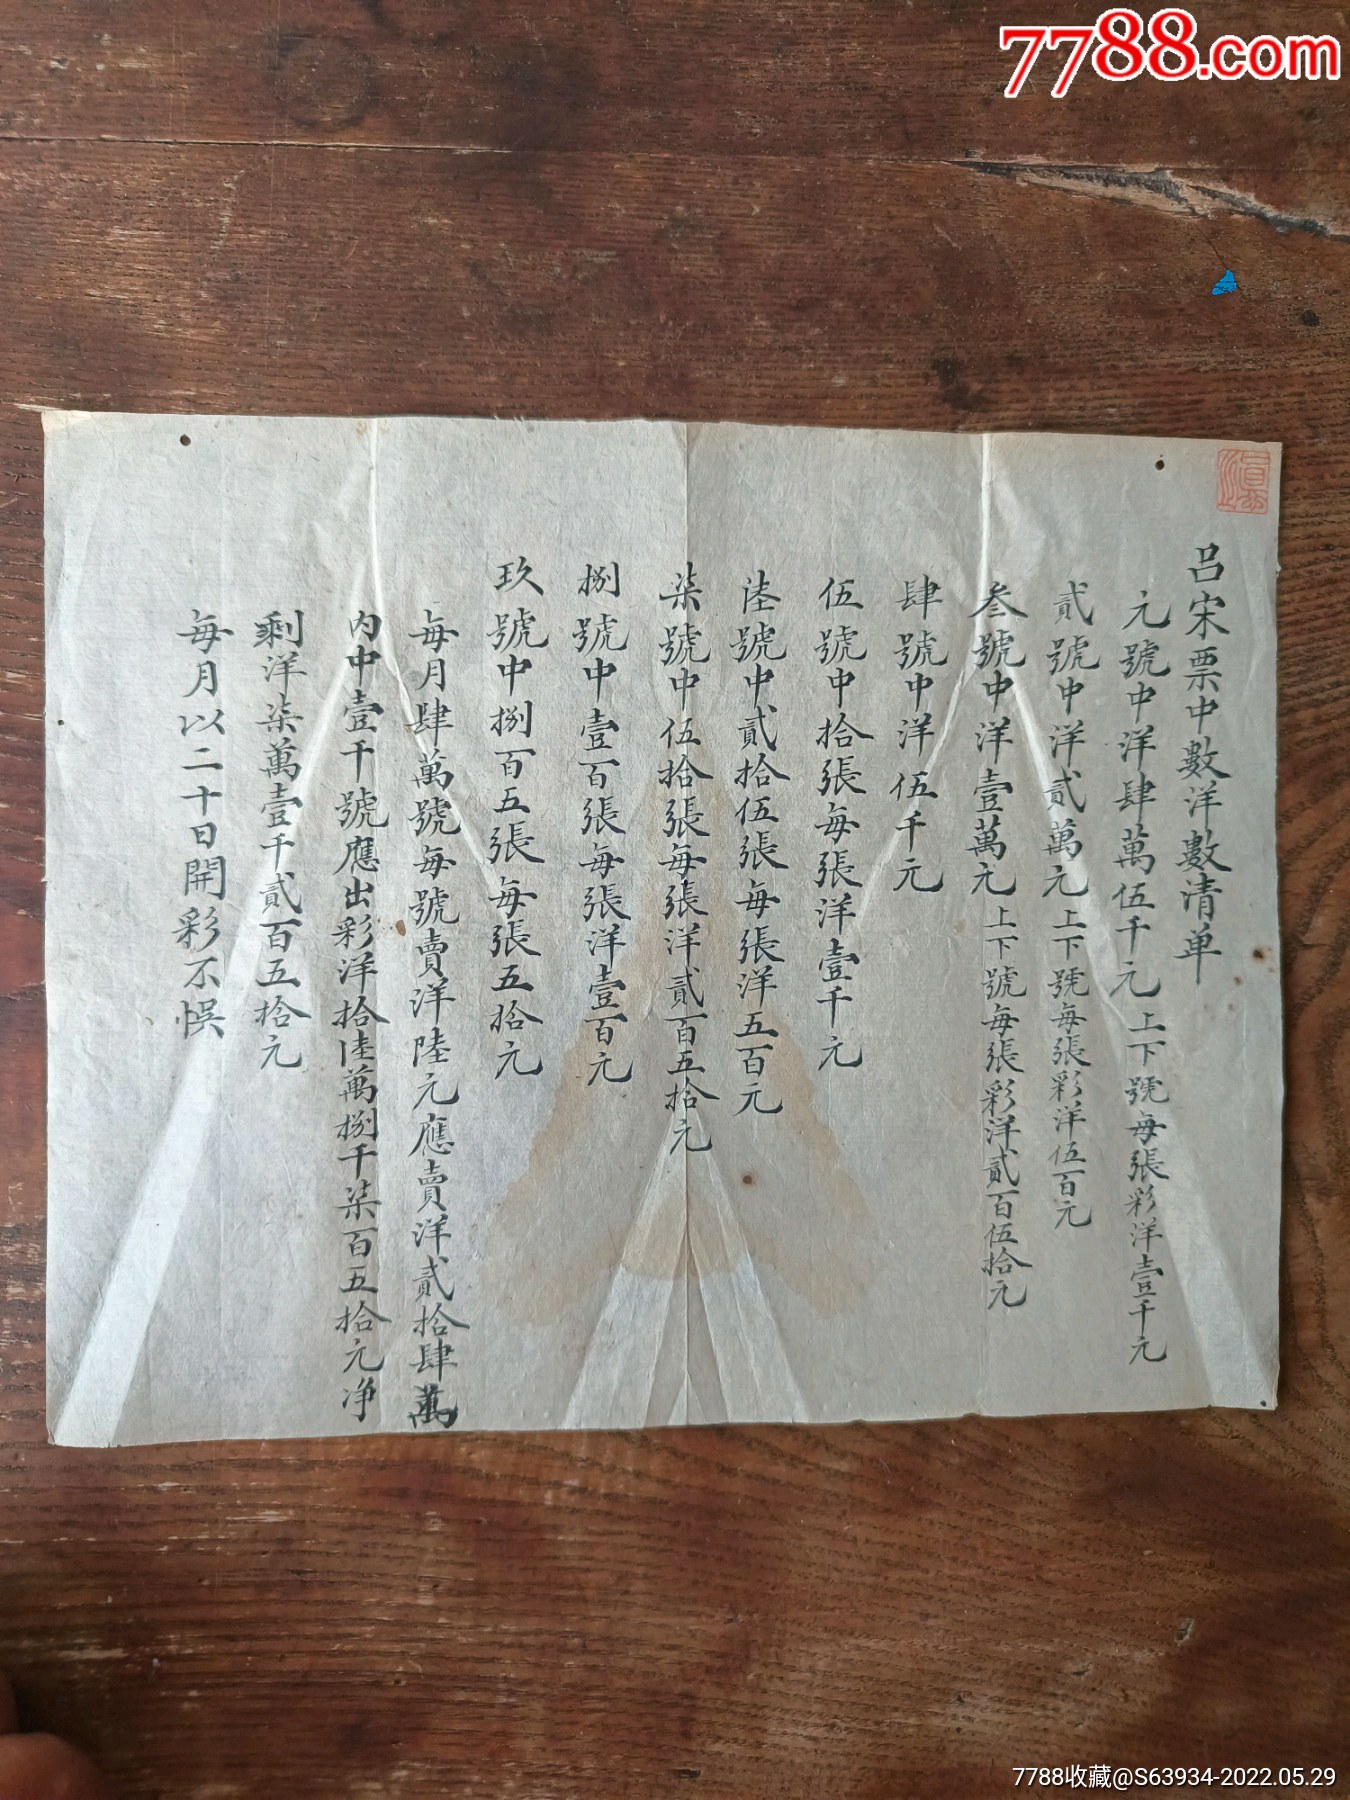 7788.com
吕宋票中數洋數清单
元號中洋肆萬伍千元上下號每張彩洋壹千元
貳號中洋貳萬元上下號每張彩洋伍百元
叁號中洋壹萬元上下號每張彩洋貳百伍拾元
肆號中洋伍千元
伍號中拾張每張洋壹千元
陸號中貳拾伍張每張洋五百元
柒號中伍拾張每張洋貳百五拾元
捌號中壹百張每張洋壹百元
玖號中捌百五張每張五拾元
每月肆萬號每號賣洋陸元應賣洋貳拾肆萬
内中壹千號應出彩洋拾陸萬捌千柒百五拾元净
剩洋柒萬壹千貳百五拾元
每月以二十日開彩不悮
7788收藏@S63934-2022.05.29